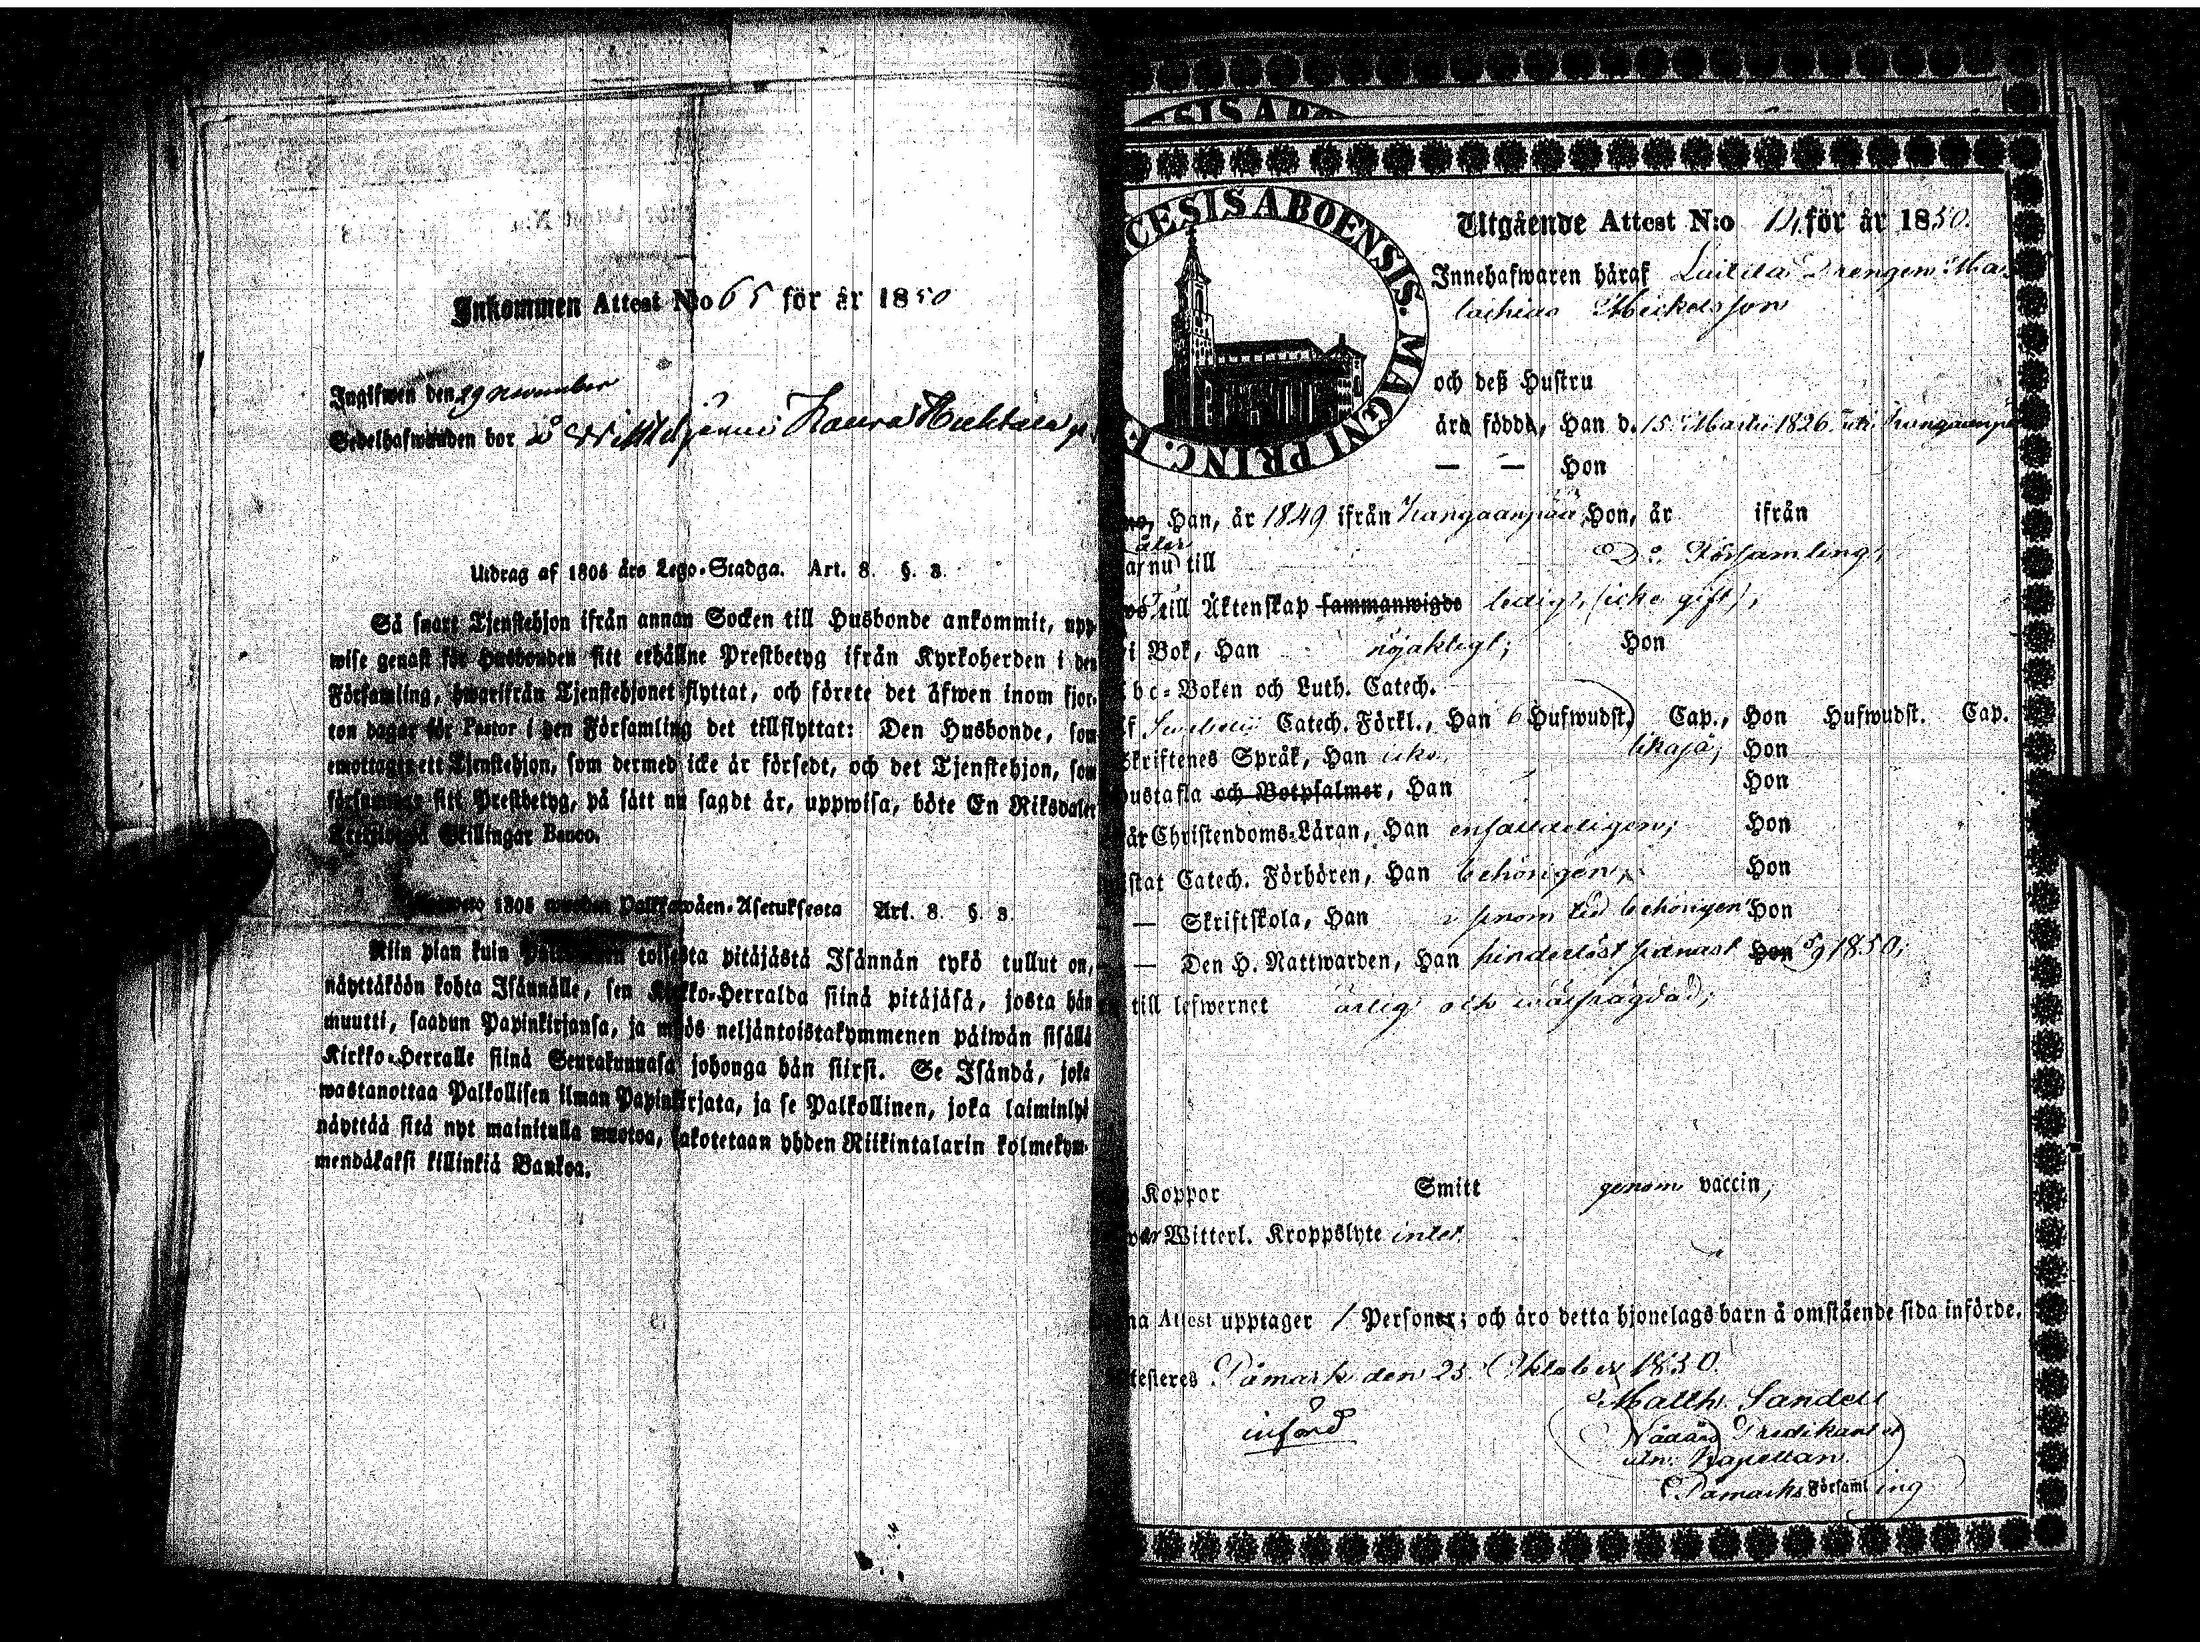 Inkommen Attest N:o 65 för år 1850
Ingifwen den 29 november
Sedelhafwanden bor å
Utdrag af 1805 års Lego-Stadga. Art. 8. §. 8.
Så snart Tjenstehjon ifrån annan Socken till Husbonde ankommit, upp-
wise genast för Husbonden sitt erhållne Prestbetyg ifrån Kyrkoherden i den
Församling, hwarifrån Tjenstehjonet flyttat, och förete det äfwen inom fjor-
ton dagar för Pastor i den Församling det tillflyttat: Den Husbonde, som
emottager ett Tjenstehjon, som dermed icke är försedt, och det Tjenstehjon, som
försummar sitt Prestbetyg, på sätt nu sagdt är, uppwisa, böte En Riksdaler
Skillingar Banco.
1805 wuoden Palkkawäen-Asetuksesta Art. 8. §. 8.
Niin pian kuin toisesta pitäjästä Isännän tykö tullut on,
näyttäköön kohta Isännälle, sen Kirkko-Herralda siinä pitäjäsä, josta hän
muutti, saadun Papinkirjansa, ja myös neljäntoistakymmenen päiwän sisällä
Kirkko-Herralle siinä Seurakunnasa johonga hän siirst. Se Isändä, joka
wastanottaa Palkollisen ilman Papinkirjata, ja se Palkollinen, joka laiminlyö
näyttää sitä nyt mainitulla muotoa, sakotetaan yhden Riikintalarin kolmekym-
mendäkaksi killinkiä Bankoa.
CESIS ABOENSIS. MAGNI PRINC. F
Utgående Attest N:o för år 1850.
Innehafwaren häraf Drengen
Mickelsson
och deß Hustru
äro födde, Han d. 15 Martii 1826 uti Kangaanpä
— — Hon
Han, år 1849 ifrån Kangaanpää, Hon, år ifrån
åter
nu till Do Församling,
till Äktenskap sammanwigde ledig, (icke gift);
i Bok, Han nöjaktigt; Hon
bc-Boken och Luth. Catech.
Catech. Förkl., Han 6 Hufwudst. Cap., Hon Hufwudst. Cap.
Skriftenes Språk, Han likaså; Hon
Hustafla och Botpsalmer, Han Hon
Christendoms-Läran, Han enfaldeligen; Hon
Catech. Förhören, Han behörigen, Hon
— Skriftskola, Han i sinom tid behörigen Hon
— Den H. Nattwarden, Han hinderlöst senast Hon 5/9 1850;
till lefwernet ärlig och wälfrägdad;
Koppor Smitt genom vaccin;
Witterl. Kroppslyte intet.
na Attest upptager 1 Personer; och äro detta hjonelags barn å omstående sida införde.
testeres Påmark den 23. Oktober 1850.
Matth. Sandell
införd
Predikant
Kapellan.
Påmarks Församling